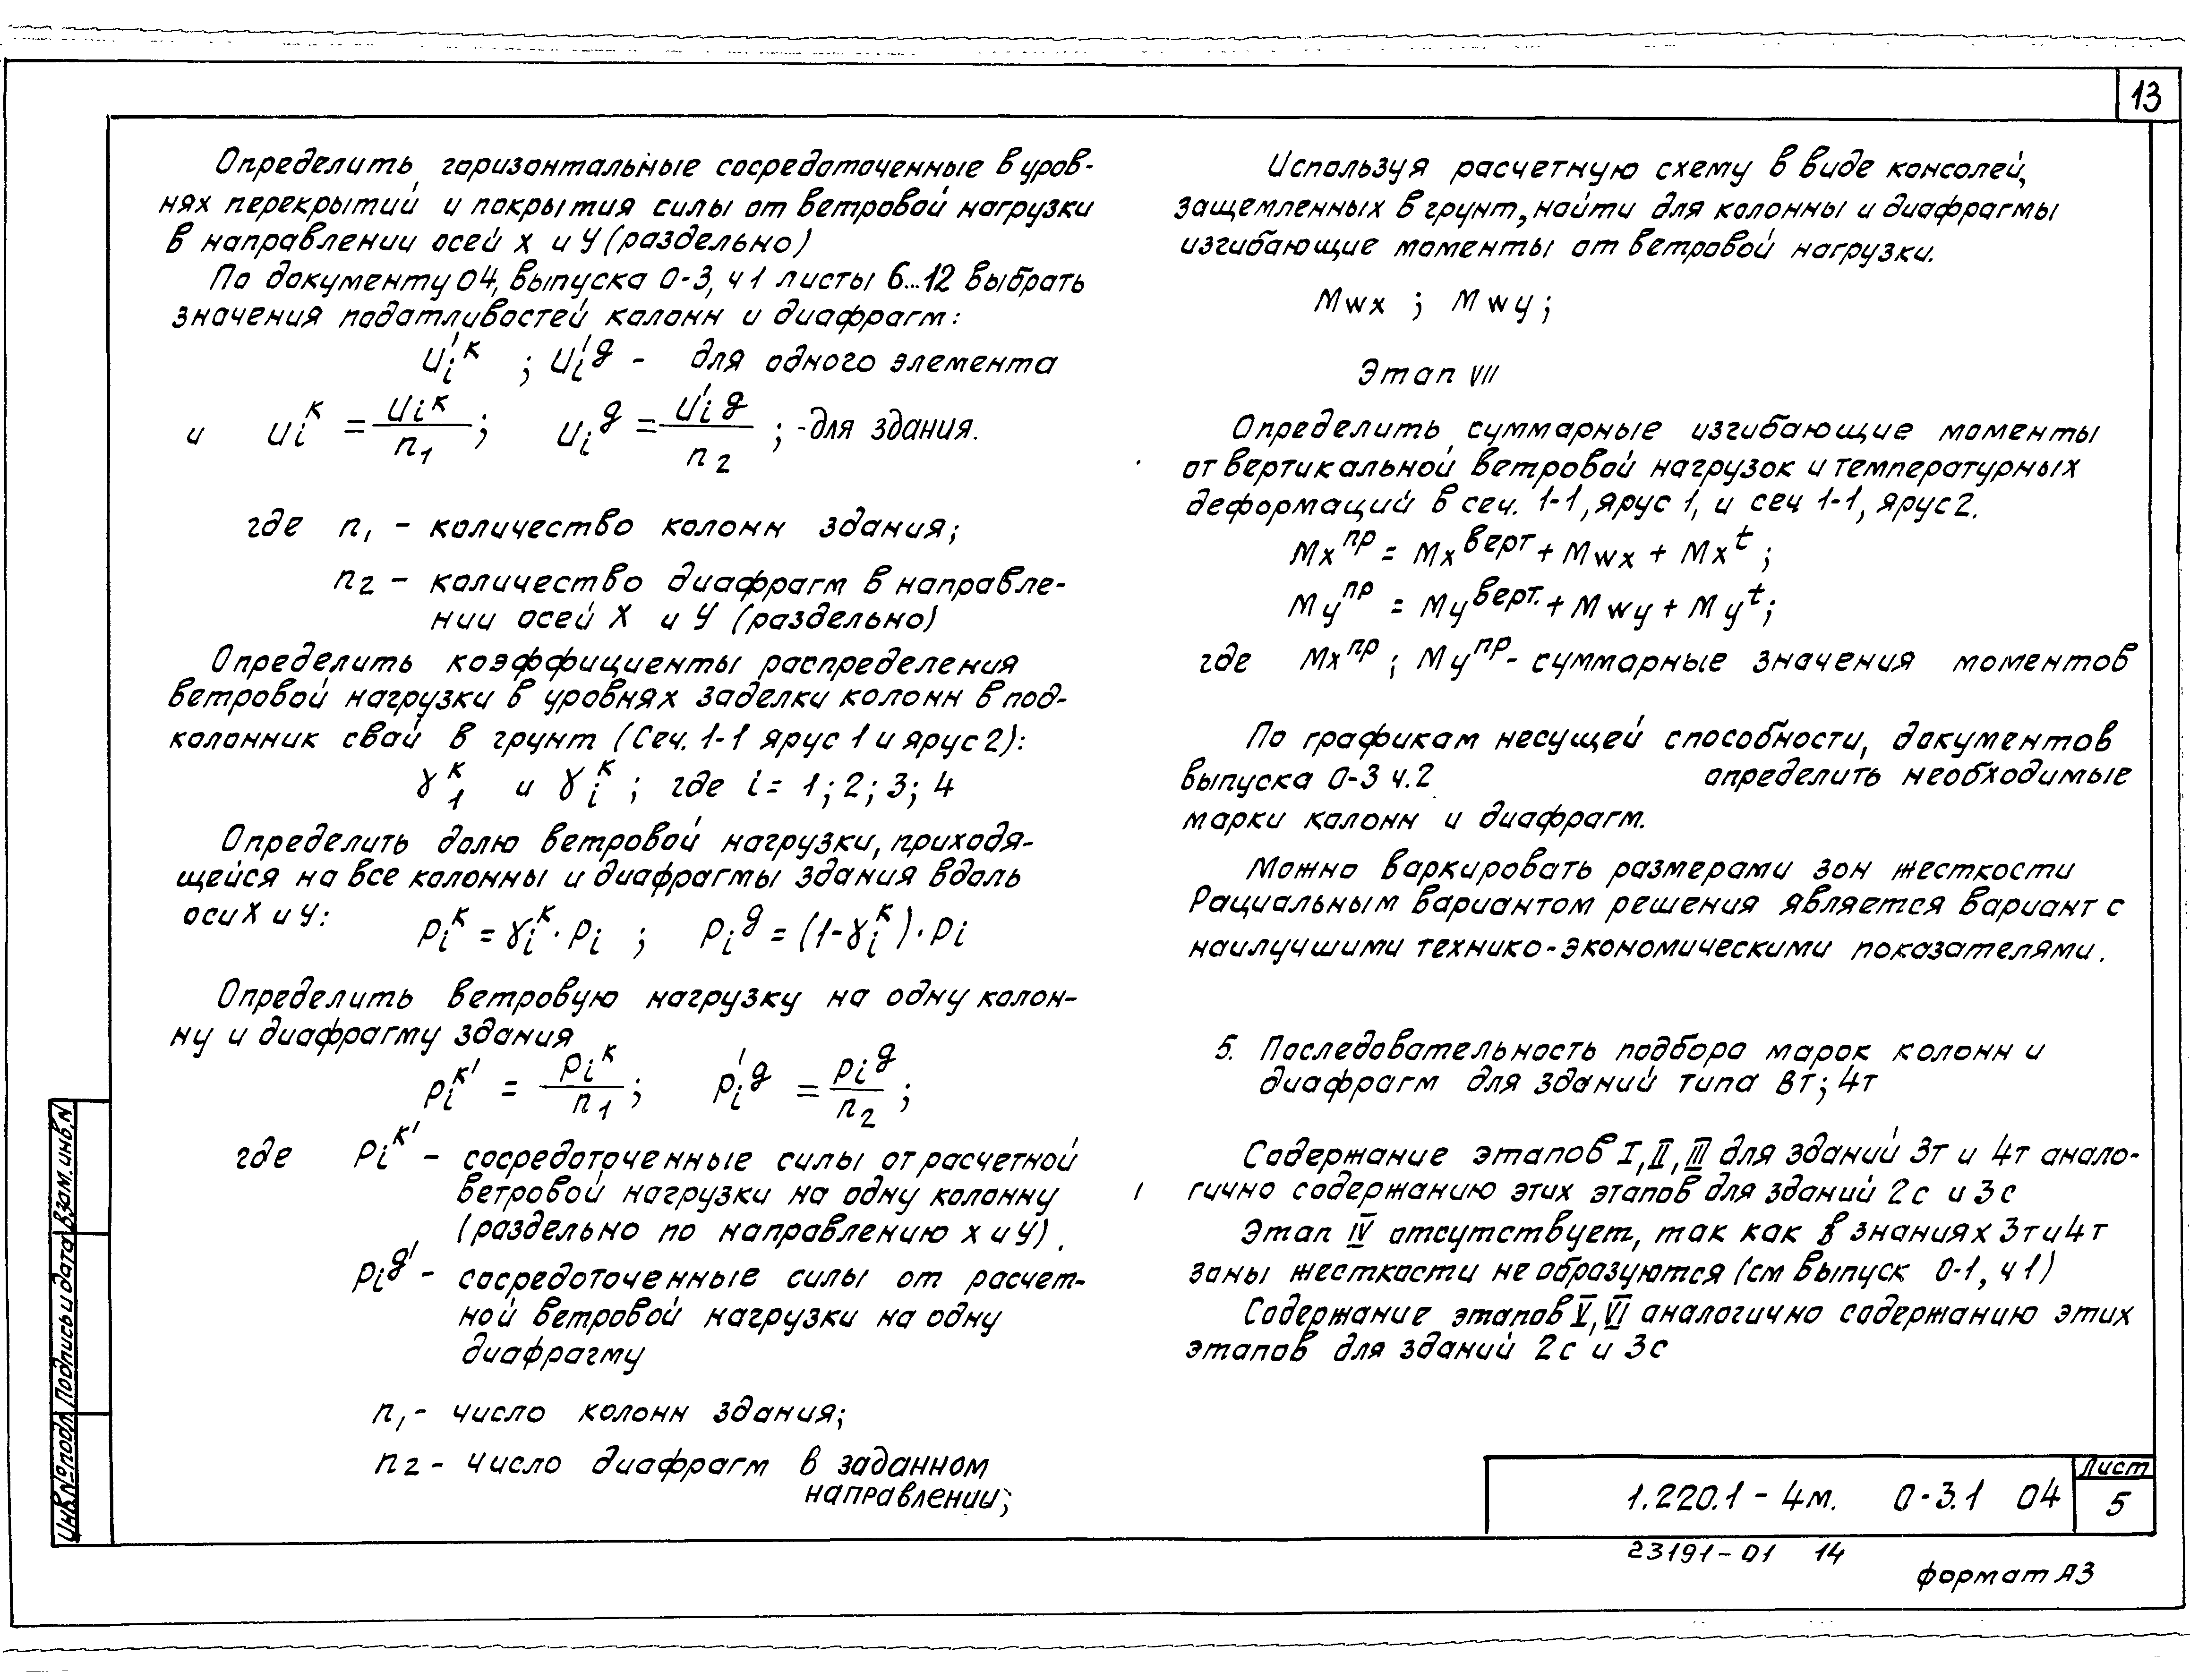 13
Определить горизонтальные сосредоточенные в уров-
нях перекрытий и покрытия силы от ветровой нагрузки
в направлении осей X и У (раздельно)
По документу 04, выпуска 0-3, ч 1 листы 6...12 выбрать
значения податливостей колонн и диафрагм:
u'ᵢᵏ ; u'ᵢᵍ - для одного элемента
и uᵢᵏ = uᵢᵏ/n₁ ; uᵢᵍ = u'ᵢᵍ/n₂ ; - для здания.
где n₁ - количество колонн здания;
n₂ - количество диафрагм в направле-
нии осей X и У (раздельно)
Определить коэффициенты распределения
ветровой нагрузки в уровнях заделки колонн в под-
колонник свай в грунт (Сеч. 1-1 ярус 1 и ярус 2):
γ₁ᵏ и γᵢᵏ ; где i = 1; 2; 3; 4
Определить долю ветровой нагрузки, приходя-
щейся на все колонны и диафрагмы здания вдоль
оси X и У:
pᵢᵏ = γᵢᵏ · pᵢ ; pᵢᵍ = (1-γᵢᵏ) · pᵢ
Определить ветровую нагрузку на одну колон-
ну и диафрагму здания
pᵢᵏ' = pᵢᵏ/n₁ ; p'ᵢᵍ = pᵢᵍ/n₂ ;
где pᵢᵏ' - сосредоточенные силы от расчетной
ветровой нагрузки на одну колонну
(раздельно по направлению X и У).
pᵢᵍ' - сосредоточенные силы от расчет-
ной ветровой нагрузки на одну
диафрагму
n₁ - число колонн здания;
n₂ - число диафрагм в заданном
направлении;
Используя расчетную схему в виде консолей,
защемленных в грунт, найти для колонны и диафрагмы
изгибающие моменты от ветровой нагрузки.
Mwx ; Mwy ;
Этап VII
Определить суммарные изгибающие моменты
от вертикальной ветровой нагрузок и температурных
деформаций в сеч. 1-1, ярус 1, и сеч 1-1, ярус 2.
Mxᵖᵖ = Mxᵛᵉʳᵗ + Mwx + Mxᵗ ;
Myᵖᵖ = Myᵛᵉʳᵗ· + Mwy + Myᵗ ;
где Mxᵖᵖ ; Myᵖᵖ - суммарные значения моментов
По графикам несущей способности, документов
выпуска 0-3 ч.2 определить необходимые
марки колонн и диафрагм.
Можно варкировать размерами зон жесткости
Рациальным вариантом решения является вариант с
наилучшими технико-экономическими показателями.
5. Последовательность подбора марок колонн и
диафрагм для зданий типа 8т; 4т
Содержание этапов I, II, III для зданий 3т и 4т анало-
гично содержанию этих этапов для зданий 2с и 3с
Этап IV отсутствует, так как в знаниях 3т и 4т
зоны жесткости не образуются (см выпуск 0-1, ч 1)
Содержание этапов V, VI аналогично содержанию этих
этапов для зданий 2с и 3с
Инв.№подл. Подпись и дата Взам.инв.N
1.220.1 - 4м. 0-3.1 04
Лист
5
23191-01 14
формат А3